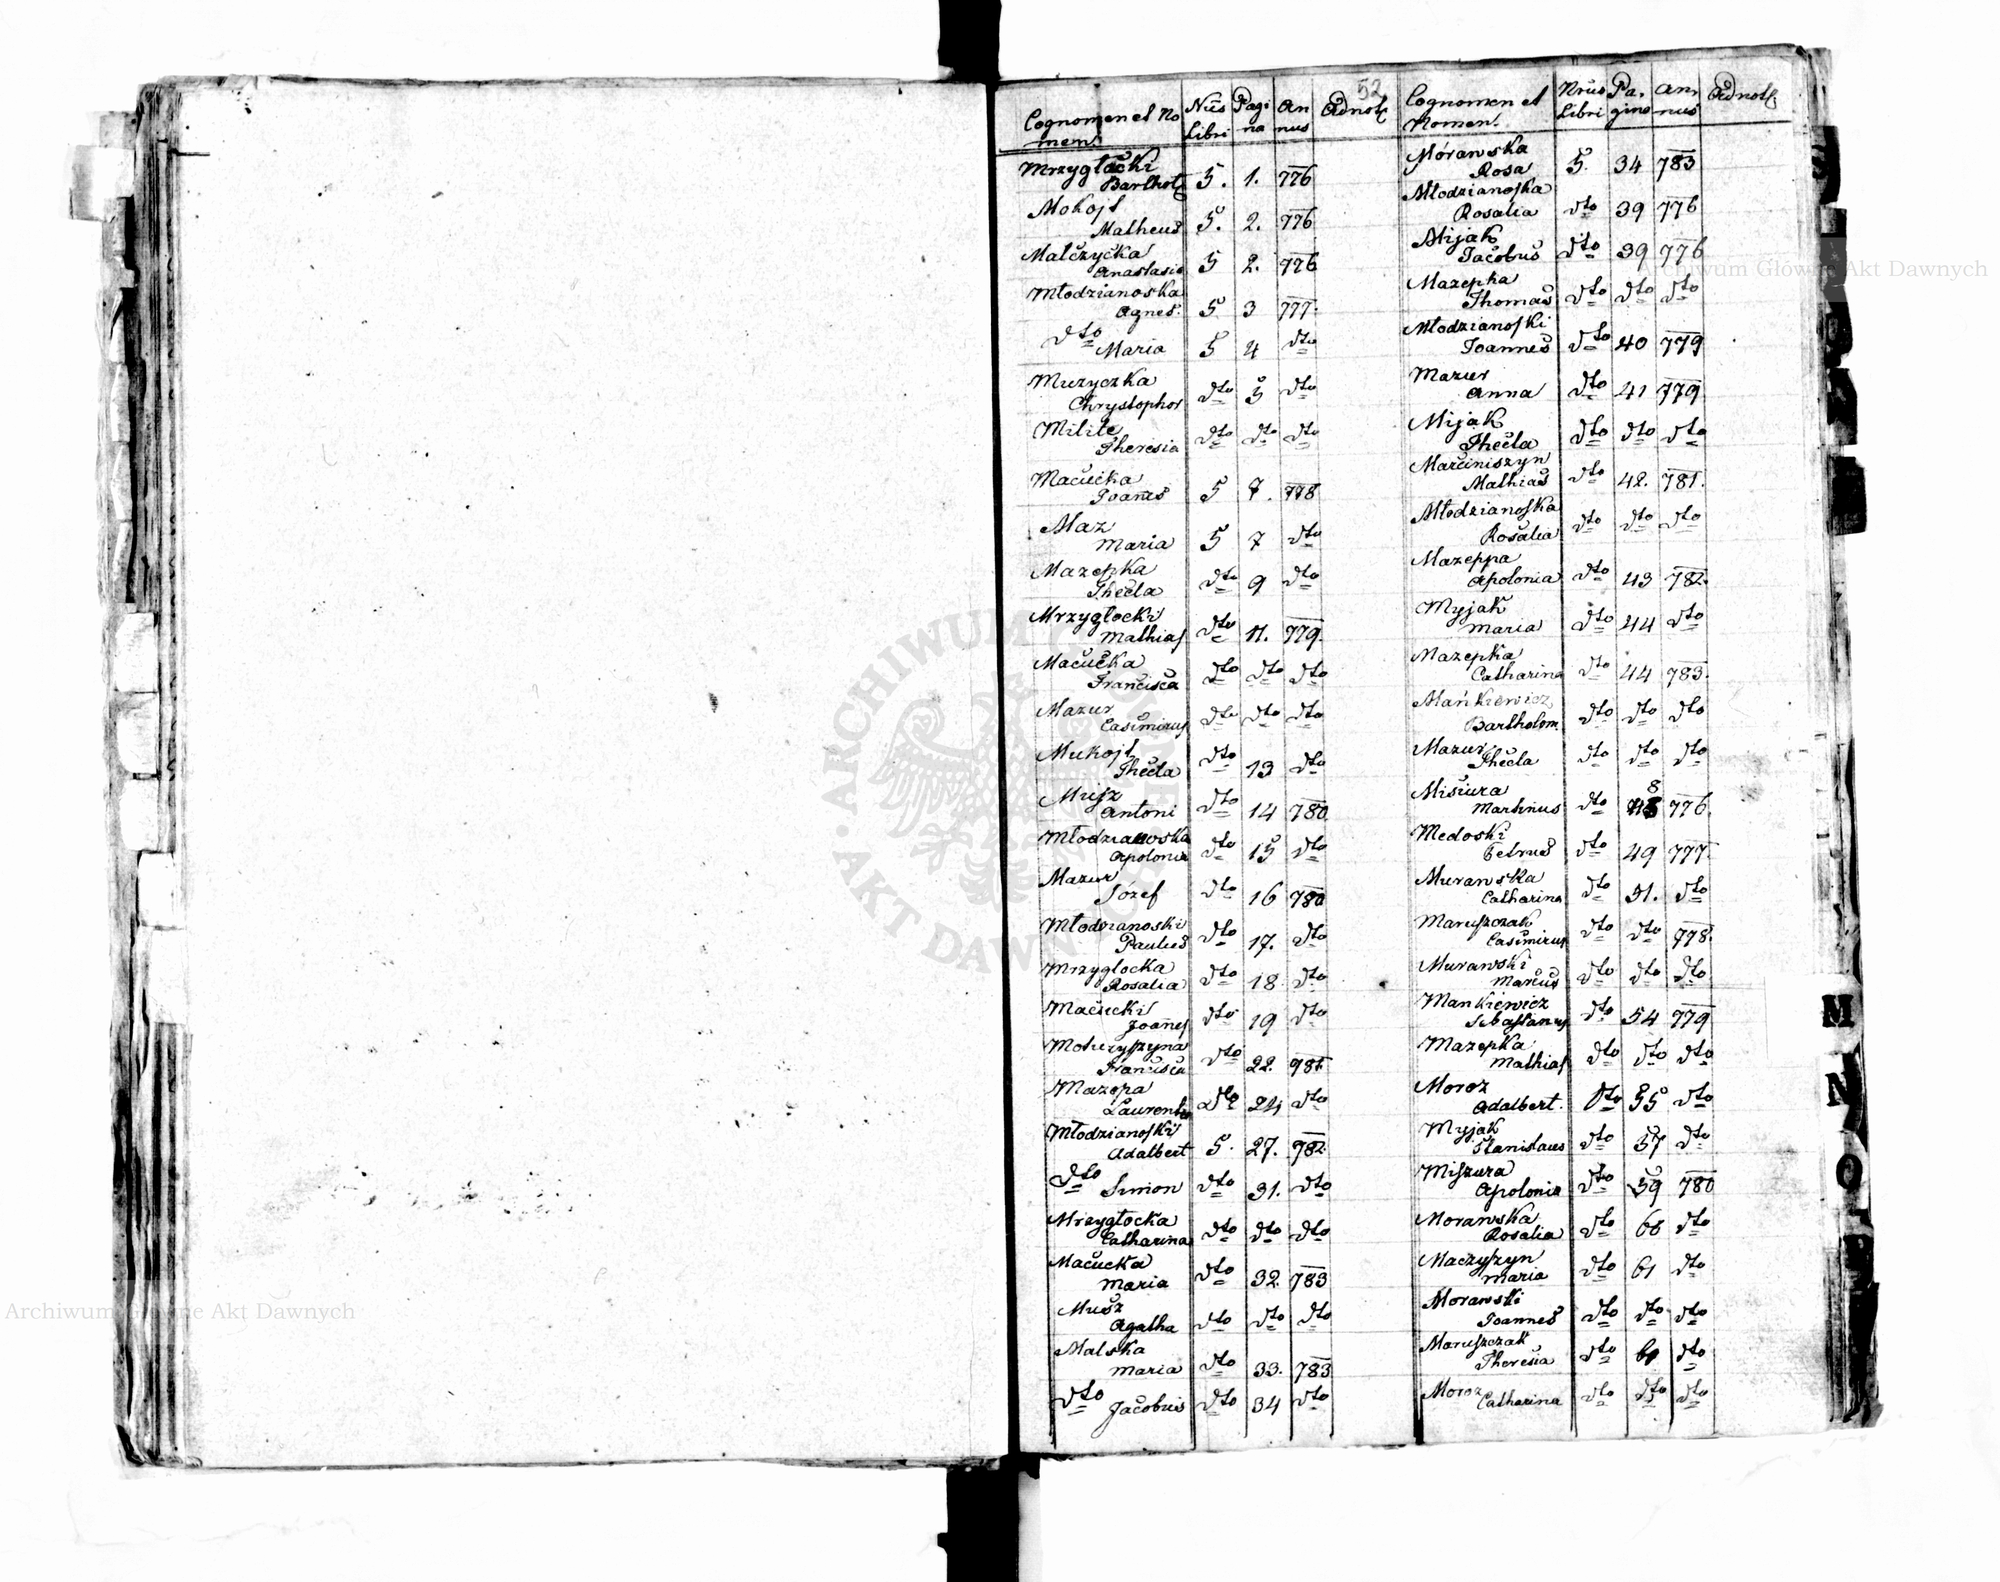 52
Cognomen et No
men.
Nrus
Libri
Pagi
na
An
nus
Adnot
Mrzygłocki
Barthol 5. 1. 776
Mokojt
Matheus 5. 2. 776
Malczycka
Anastasia 5 2. 776
Młodzianoska
Agnes. 5 3 777.
dto
Maria 5 4 dto
Muzyczka
Chrystophor dto 5 dto
Milite
Theresia dto dto dto
Macucka
Joanes 5 7. 778
Maz
Maria 5 7 dto
Mazepka
Thecla dto 9 dto
Mrzygłocki
Mathias dto 11. 779.
Macucka
Francisca dto dto dto
Mazur
Casimirus dto dto dto
Mukojt
Thecla dto 13 dto
Musz
Antoni dto 14 780
Młodzianoska
Apolonia dto 15 dto
Mazur
Józef dto 16 780
Młodzianoski
Paulus dto 17. dto
Mrzyglocka
Rosalia dto 18 dto
Macucki
Joanes dto 19 dto
Francisca dto 22. 981
Mazepa
Laurent dto 24 dto
Młodzianoski
Adalbert 5. 27. 982.
dto
Simon dto 31. dto
Mrzygłocka
Catharina dto dto dto
Macucka
Maria dto 32. 783
Musz
Agatha dto dto dto
Malska
Maria dto 33. 783
dto
Jacobus dto 34 dto
Cognomen et
Nomen.
Nrus
Libri
Pa-
gina
An-
nus
Adnot
Mórawska
Rosa 5. 34 783
Młodzianoska
Rosalia dto 39 776
Mijak
Jacobus dto 39 776
Mazepka
Thomas dto dto dto
Młodzianoski
Joannes dto 40 779
Mazur
Anna dto 41 779
Mijak
Thecla dto dto dto
Marciniszyn
Mathias dto 42. 781.
Młodzianoska
Rosalia dto dto dto
Mazeppa
Apolonia dto 43 782.
Myjak
Maria dto 44 dto
Mazepka
Catharina dto 44 783.
Mańkiewicz
Bartholom. dto dto dto
Mazur
Thecla dto dto dto
Misiura
Martinus dto 48 776.
Medoski
Petrus dto 49 777.
Murawska
Catharina dto 51. dto
Maruszczak
Casimirus dto dto 778.
Murawski
Marcus dto dto dto
Mankiewicz
Sebastanus dto 54 779
Mazepka
Mathias dto dto dto
Moroz
Adalbert. dto 55 dto
Myjak
Stanislaus dto 57 dto
Miszura
Apolonia dto 59 780
Morawska
Rosalia dto 60 dto
Maczyszyn
Maria dto 61 dto
Morawski
Joannes dto dto dto
Maruszczak
Theresia dto 61 dto
Moroz
Catharina dto dto dto
M
N
O
Archiwum Główne Akt Dawnych
Archiwum Główne Akt Dawnych